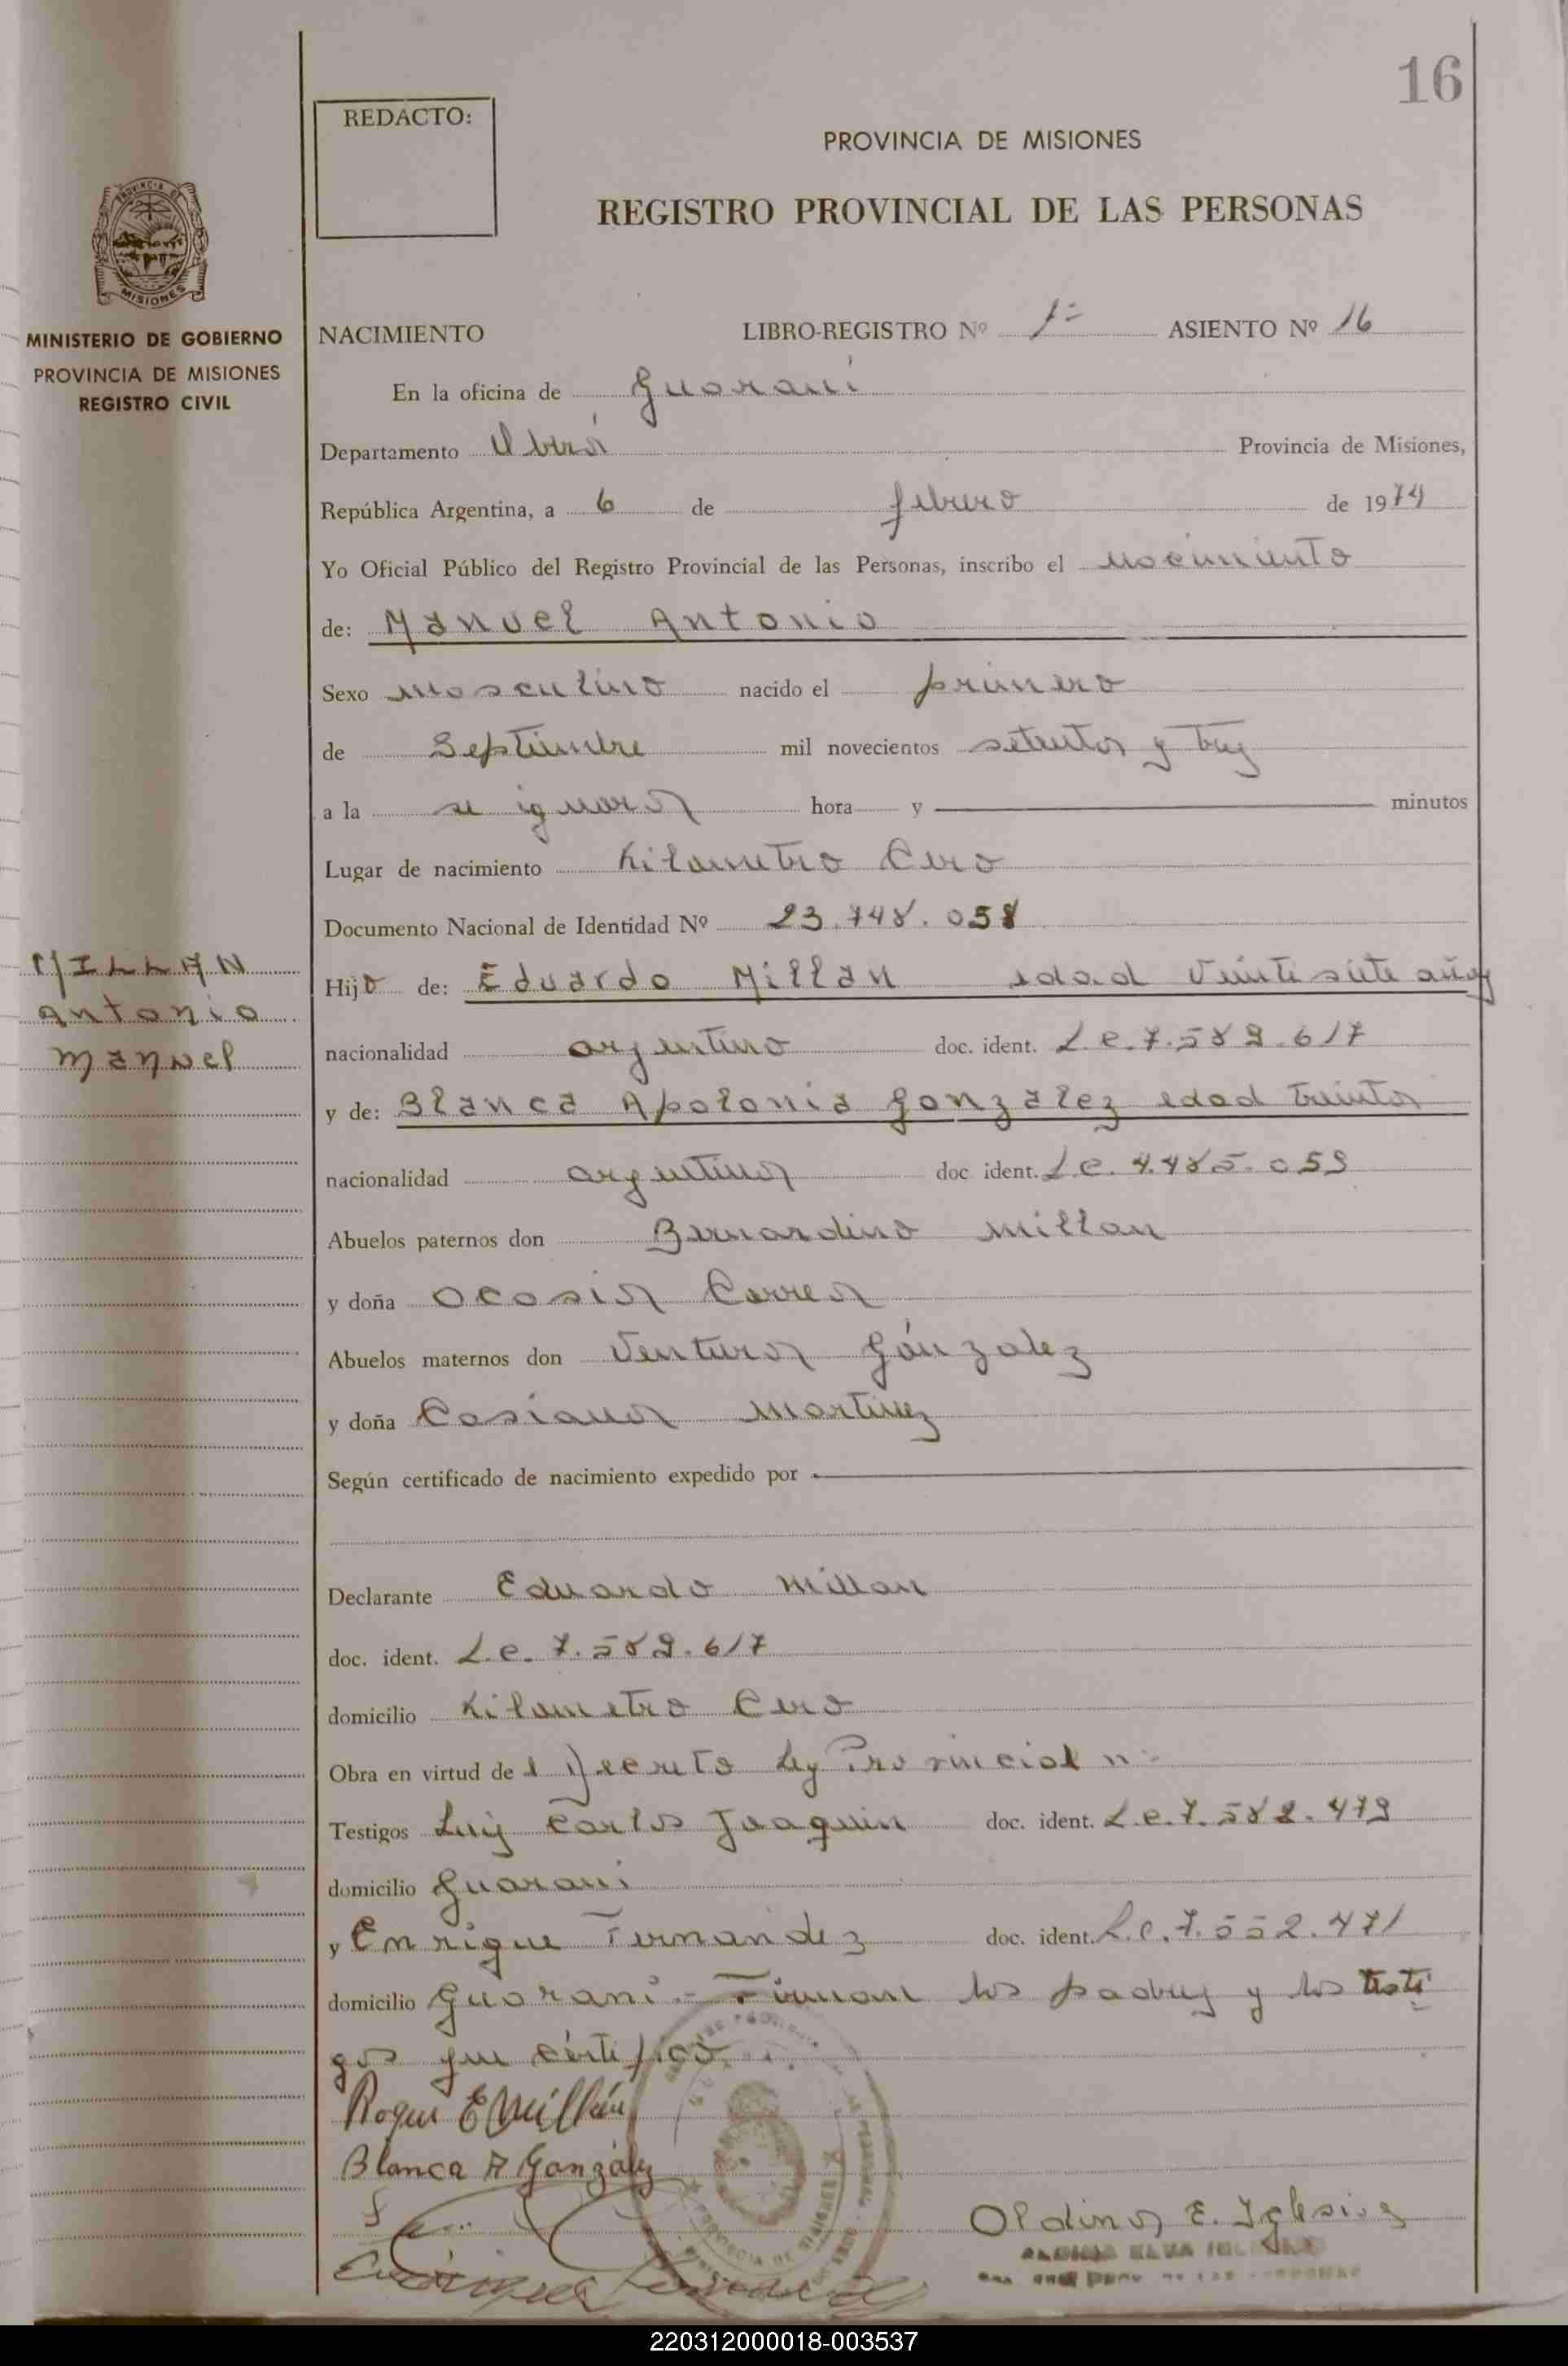 16
REDACTO:
PROVINCIA DE MISIONES
REGISTRO PROVINCIAL DE LAS PERSONAS
MISIONES
MINISTERIO DE GOBIERNO
PROVINCIA DE MISIONES
REGISTRO CIVIL
NACIMIENTO LIBRO-REGISTRO Nº 1º ASIENTO Nº 16
En la oficina de Guaraní
Departamento Oberá Provincia de Misiones,
República Argentina, a 6 de febrero de 1974
Yo Oficial Público del Registro Provincial de las Personas, inscribo el nacimiento
de: Manuel Antonio
Sexo masculino nacido el primero
de Septiembre mil novecientos setenta y tres
a la se ignora hora y minutos
Lugar de nacimiento Kilometro Cero
Documento Nacional de Identidad Nº 23.748.058
MILLAN
Antonio
Manuel
Hijo de: Eduardo Millan edad veinti siete años
nacionalidad argentino doc. ident. L.e.7.589.617
y de: Blanca Apolonia Gonzalez edad treinta
nacionalidad argentina doc ident. L.C. 4.485.059
Abuelos paternos don Bernardino Millan
y doña Ocasia Correa
Abuelos maternos don Ventura González
y doña Casiana Martinez
Según certificado de nacimiento expedido por
Declarante Eduardo Millan
doc. ident. L.e. 7.589.617
domicilio Kilometro Cero
Obra en virtud de l Decreto Ley Provincial nº
Testigos Luis Carlos Joaquin doc. ident. L.e.7.582.479
domicilio Guarani
y Enrique Fernandez doc. ident. L.e.7.552.471
domicilio Guarani.- Firman los padres y los testi
gos que certifico.
Roque E Millán
Blanca A Gonzalez
Oldina E. Iglesias
220312000018-003537